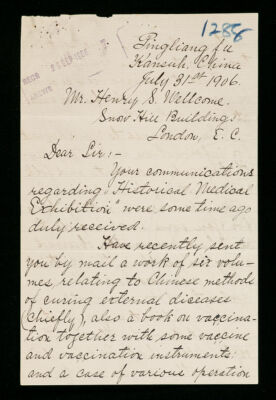 1288
Pingliang fu
Kansuh, China
July 31st 1906.
Mr. Henry S. Wellcome.
Snow Hill Buildings
London, E. C.
Dear Sir:-
Your communications
regarding "Historical Medical
Exhibition" were some time ago
duly received.
Have recently sent
you by mail a work of six volu-
mes, relating to Chinese methods
of curing external diseases
(chiefly), also a book on vaccina-
tion together with some vaccine
and vaccination instruments:
and a case of various operation